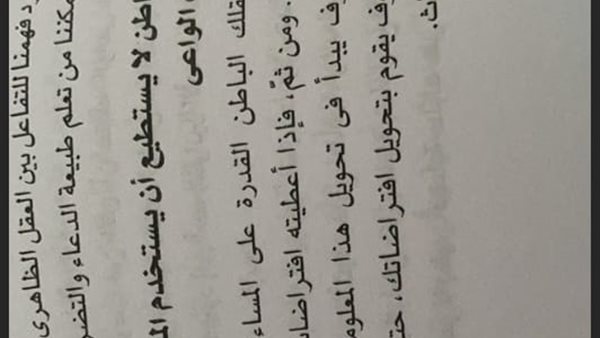 د فهمنا للتفاعل بين العقل الظاهرى
مكننا من تعلم طبيعة الدعاء والتضر
اطن لا يستطيع أن يستخدم الم
الواعى
قلك الباطن القدرة على المساء
. ومن ثمَّ، فإذا أعطيته افتراضا
ف يبدأ فى تحويل هذا المعلوم
ف يقوم بتحويل افتراضاتك، حت
اث.